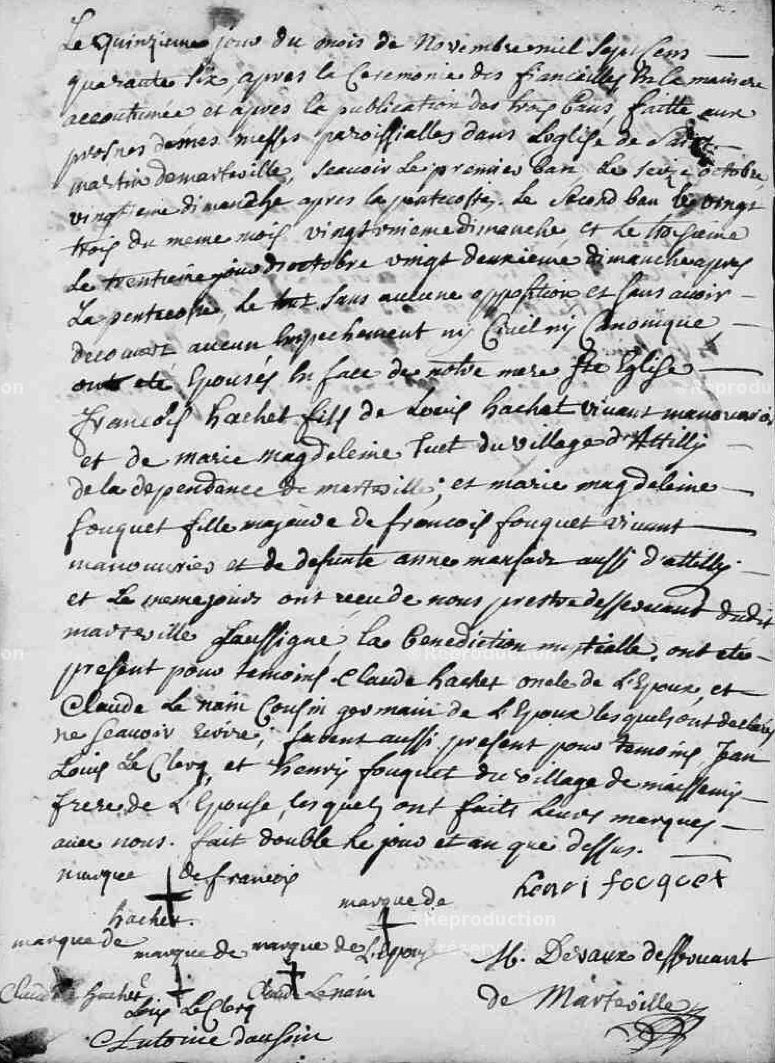 Le Quinzieme jour du mois de Novembre mil sept Cens
quarante six, apres la Ceremonie des fiancailles En la maniere
accoutumée et apres la publication des trois bans faitte aux
prosnes de mes messes paroissialles dans L'eglise de Saint
martin de marteville, Scauoir Le premier ban Le seize octobre,
vingtieme dimanche apres la pentecoste, Le Second ban le vingt
trois du meme mois vingt unieme dimanche, et Le troisieme
Le trentieme jour d'octobre vingt deuxieme dimanche apres
La pentecoste, Le tout sans aucune opposition et sans auoir
decouvert aucun Empechement ny Ciuil ny Canonique,
ont eté Epousés En face de notre mere Ste Eglise
francois hachet fils de Louis hachet viuant manouurier
et de marie magdeleine tuet du village d'Attilly
de la dependance de marteville; et marie magdeleine
fouquet fille majeure de francois fouquet viuant
manouurier et de defunte anne aussi d'attilly
et Le meme jour ont recu de nous prestre desseruant dudit
marteville soussigné la Benediction nuptialle, ont eté
present pour temoins Claude hachet oncle de L'Epoux, et
Claude Le nain Cousin germain de L'Epoux lesquels ont declarés
ne scauoir Ecrire; furent aussi present pour temoins Jean
Louis Le Clerq, et henry fouquet du village de maissemy
frere de L'Epouse, lesquels ont faits leurs marques
auec nous. fait double Le jour et an que dessus.
marque de francois
hachet.
henri fouquet
marque de
L'epouse
marque de
Claude hachet
marque de
Louis Le Clerq
marque de
Claude Lenain
M. Devaux desseruant
de Marteville
Antoine dausoin
©Reproduction